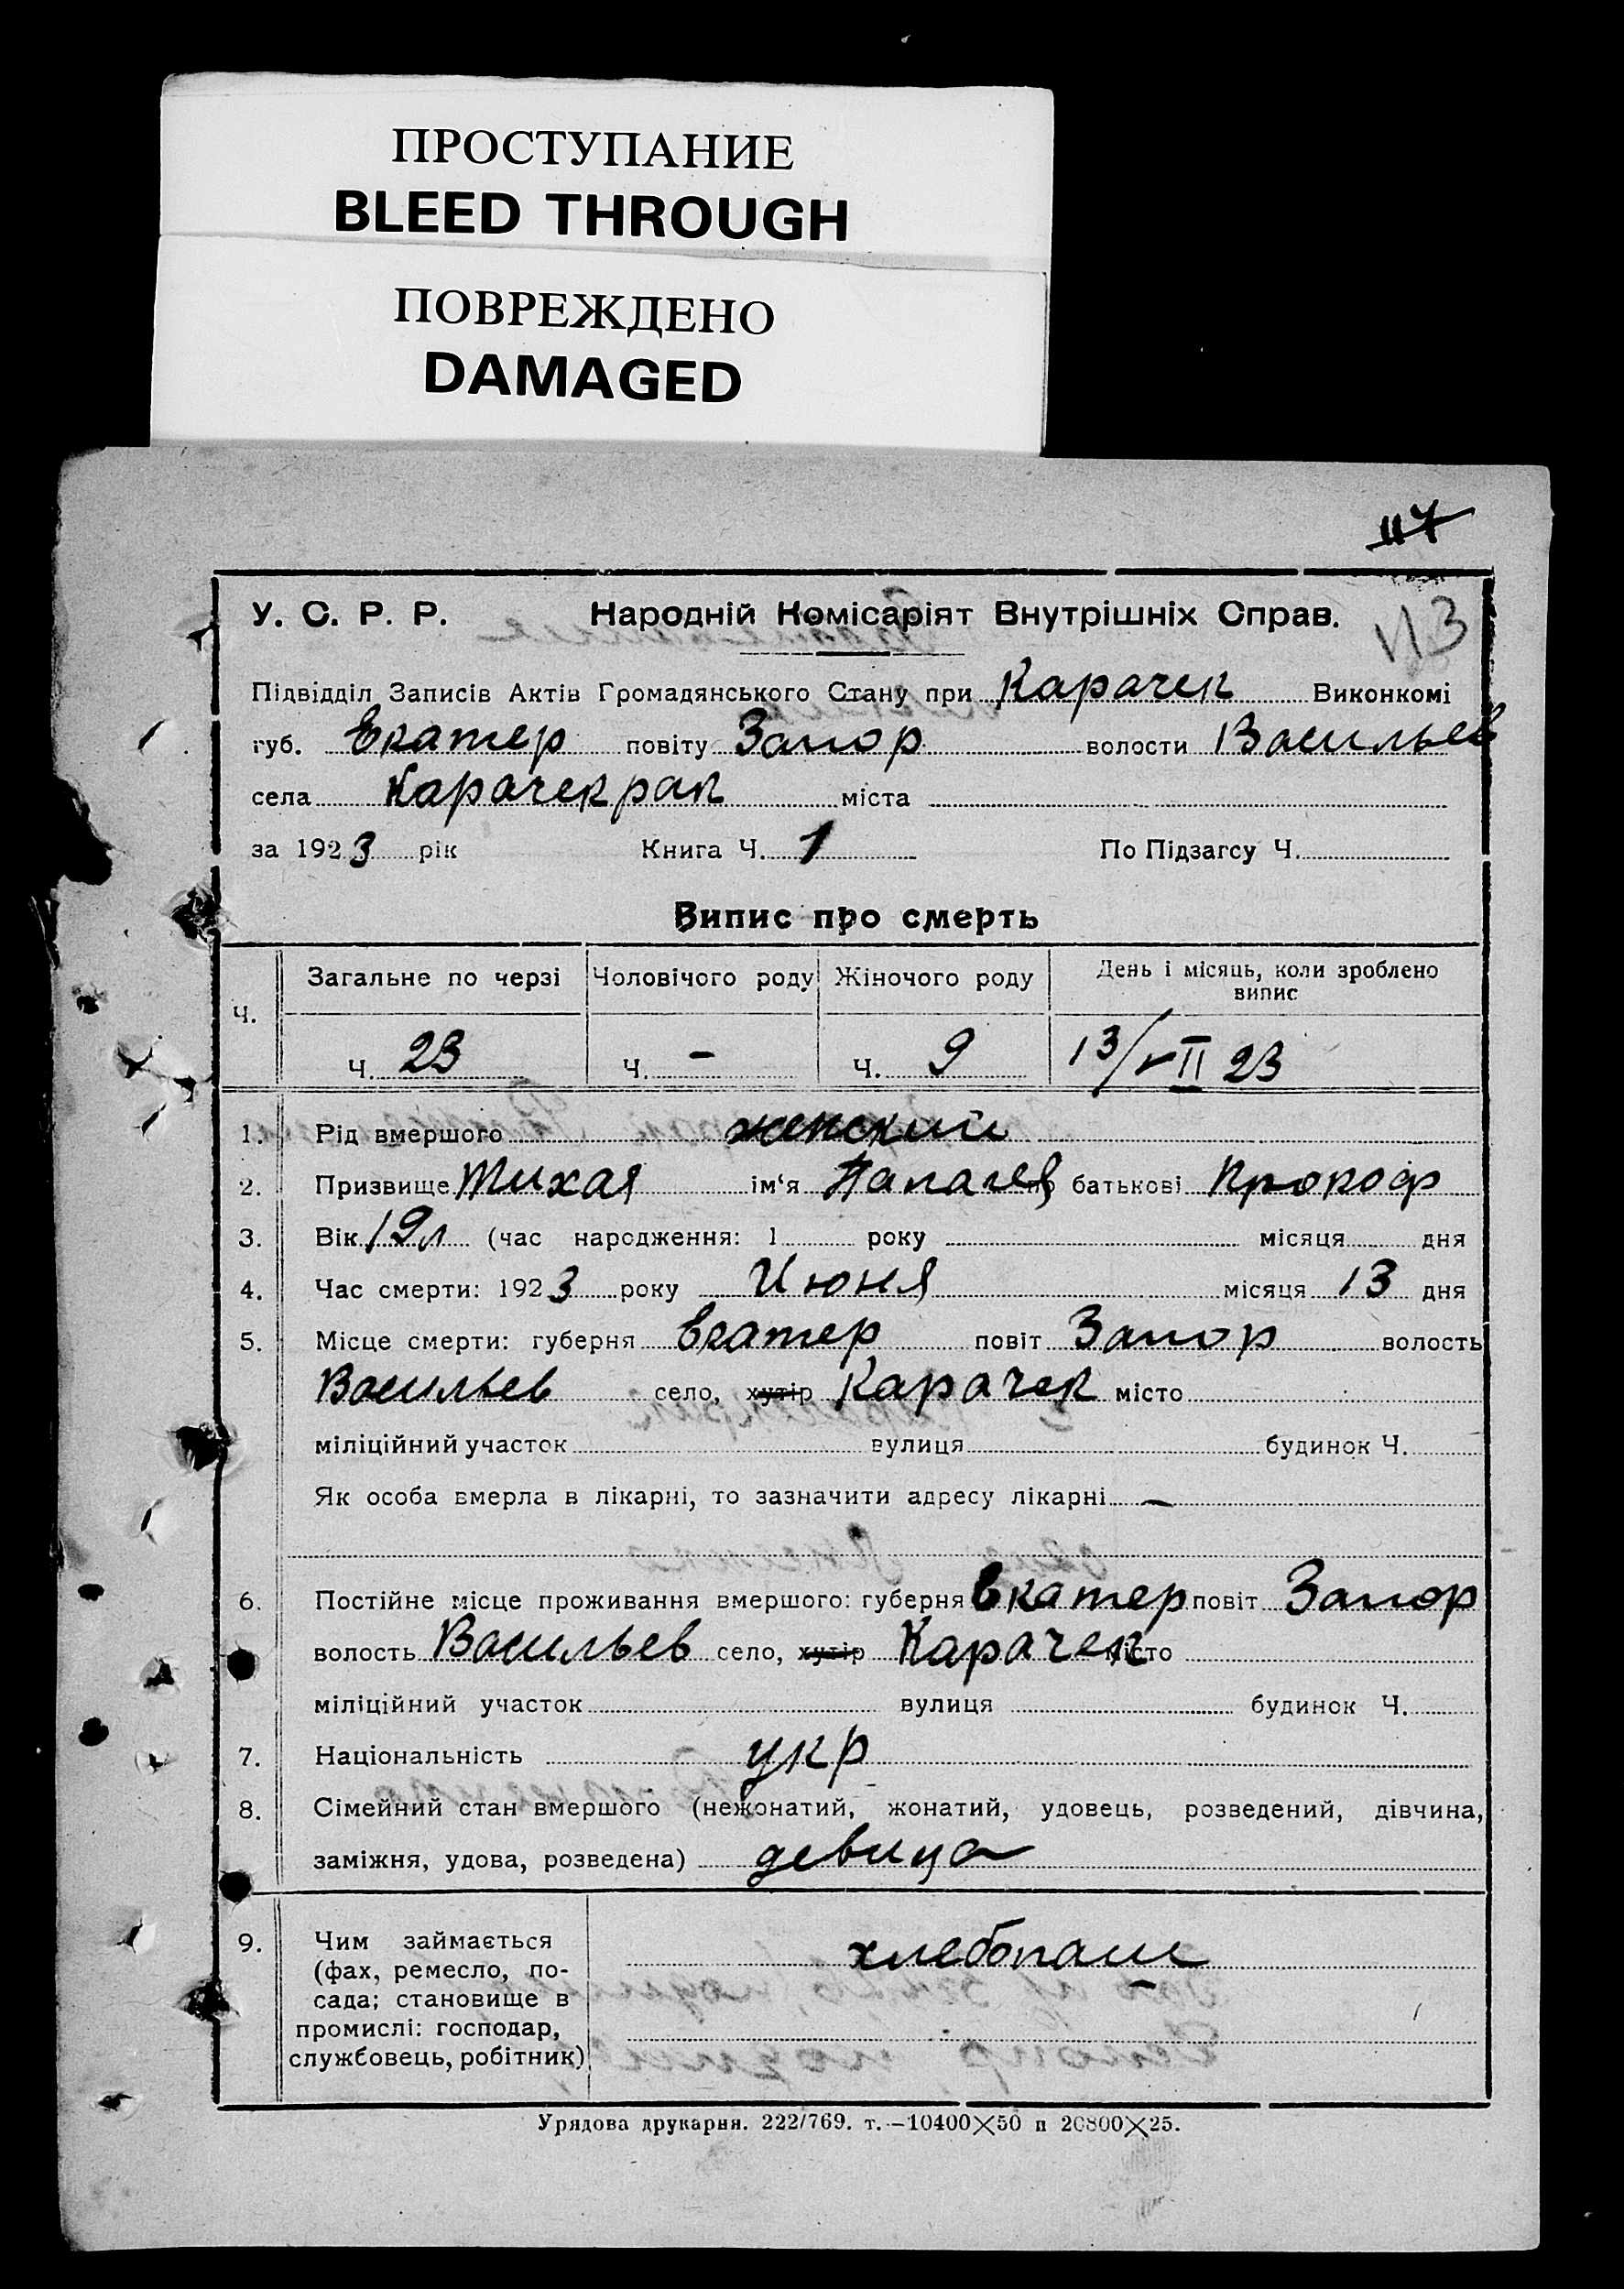 ПРОСТУПАНИЕ
BLEED THROUGH
ПОВРЕЖДЕНО
DAMAGED
117
113
У. С. Р. Р. Народній Комісаріят Внутрішніх Справ.
Підвідділ Записів Актів Громадянського Стану при Карачек Виконкомі
губ. Екатер повіту Запор волости Васильев
села Карачекрак міста
за 1923 рік Книга Ч. 1 По Підзагсу Ч.
Випис про смерть
Ч. Загальне по черзі Чоловічого роду Жіночого роду День і місяць, коли зроблено
випис
Ч. 23 Ч. – Ч. 9 13/VII 23
1. Рід вмершого женский
2. Призвище Тихая ім‘я по батькові Прокоф
3. Вік 19 л (час народження: 1 року місяця дня
4. Час смерти: 1923 року Июня місяця 13 дня
5. Місце смерти: губерня Екатер повіт Запор волость
Васильев село, хутір Карачек місто
міліційний участок вулиця будинок Ч.
Як особа вмерла в лікарні, то зазначити адресу лікарні –
6. Постійне місце проживання вмершого: губерня Екатер повіт Запор
волость Васильев село, хутір Карачек місто
міліційний участок вулиця будинок Ч.
7. Національність укр
8. Сімейний стан вмершого (нежонатий, жонатий, удовець, розведений, дівчина,
заміжня, удова, розведена) девица
9. Чим займається хлебопаш
(фах, ремесло, по-
сада; становище в
промислі: господар,
службовець, робітник)
Урядова друкарня. 222/769. т.–10400×50 п 20800×25.